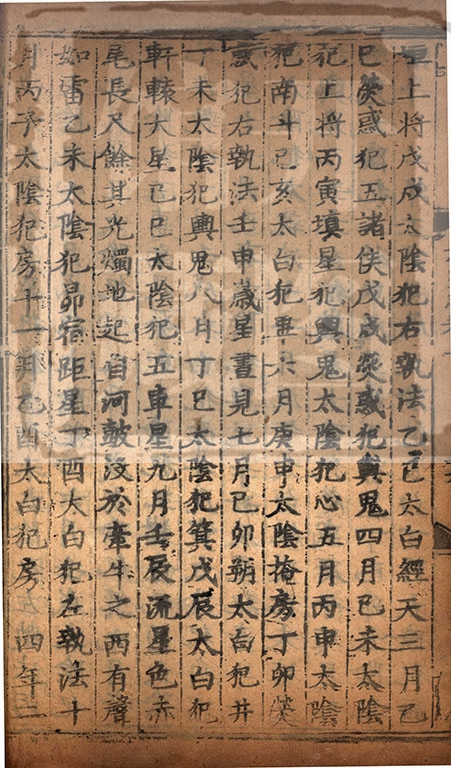 垣上将戊戌太陰犯右執法乙巳太白經天三月己
巳熒惑犯五諸侯戊戌熒惑犯輿鬼四月己未太陰
犯上将丙寅填星犯輿鬼太陰犯心五月丙申太陰
犯南斗己亥太白犯畢六月庚申太陰掩房丁卯熒
惑犯右執法壬申歳星晝見七月己卯朔太白犯井
丁未太陰犯輿鬼八月丁巳太陰犯箕戊辰太白犯
軒轅大星己巳太陰犯五車星九月壬辰流星色赤
尾長尺餘其光燭地起自河皷沒於牽牛之西有聲
如雷乙未太陰犯昴宿距星丁酉太白犯左執法十
月丙子太陰犯房十一月乙酉太白犯房 四年二